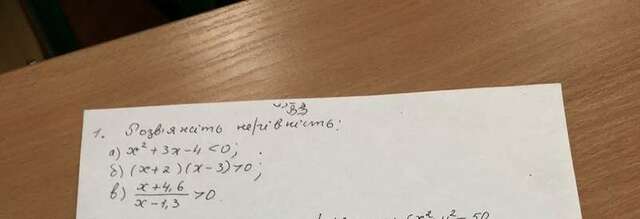 В3
1. Розв'яжіть нерівність:
а) x² + 3x - 4 < 0;
б) (x + 2)(x - 3) > 0;
в) \frac{x + 4,6}{x - 1,3} > 0.